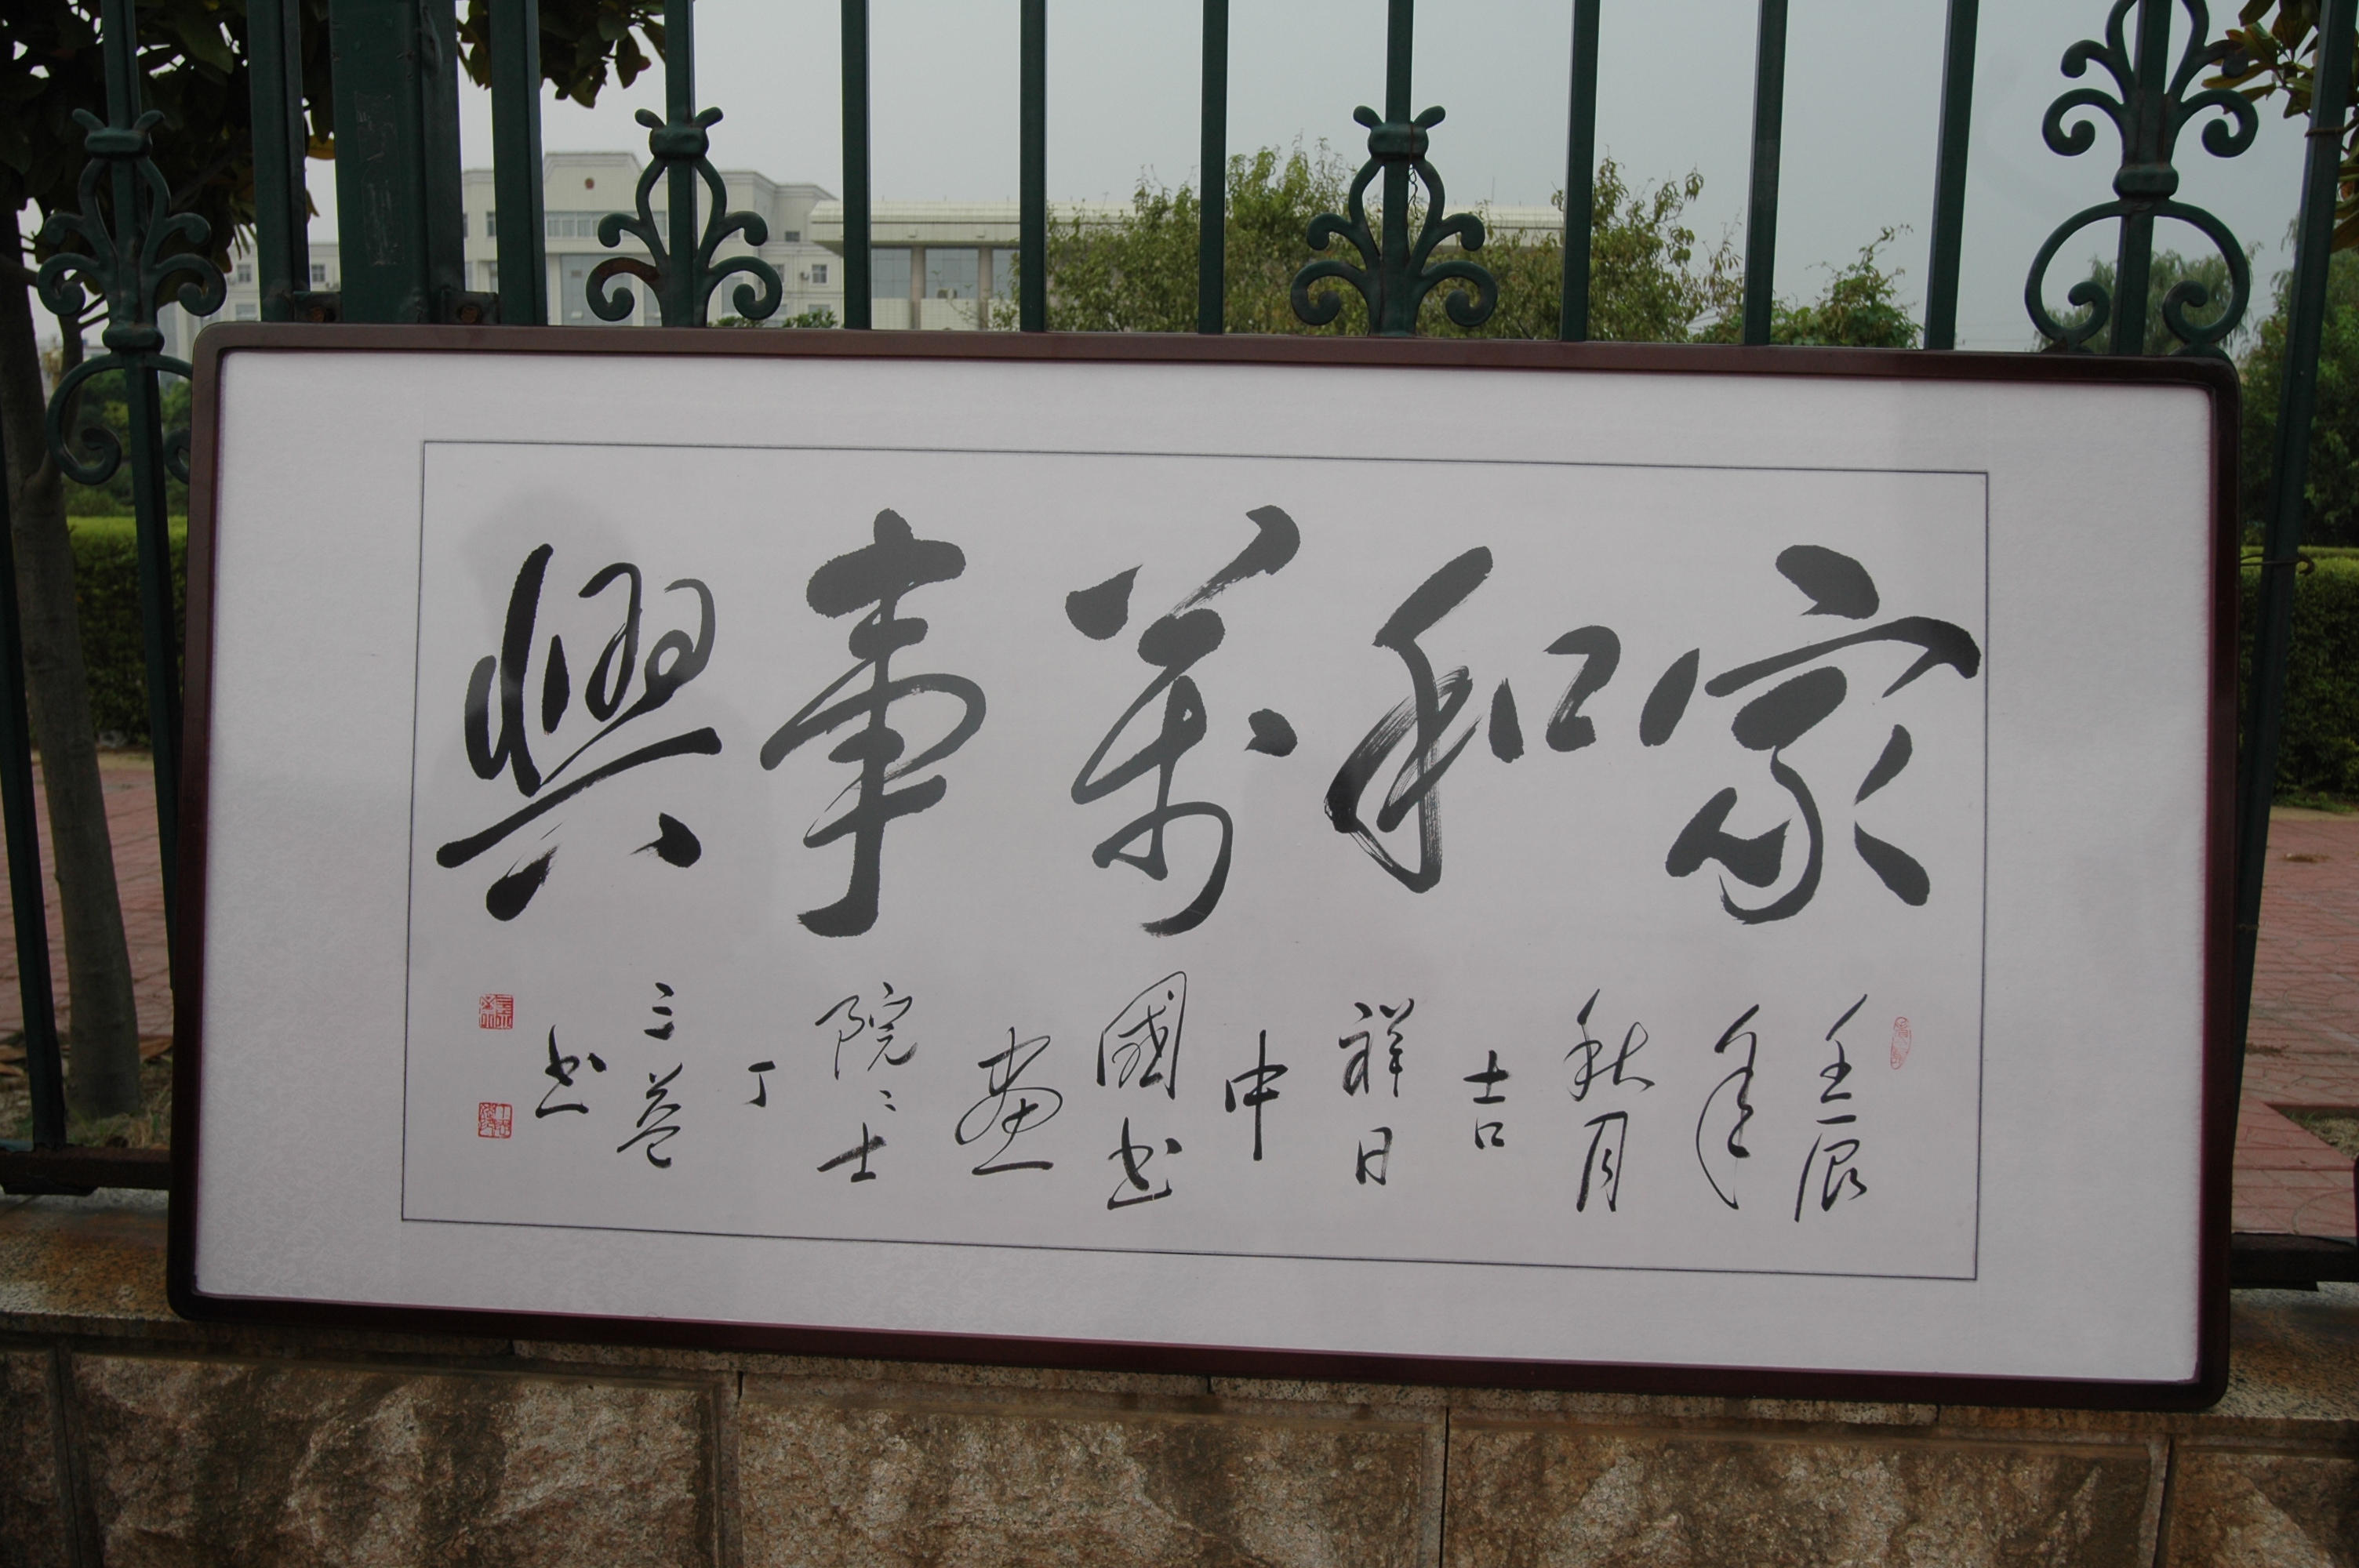 家和萬事興
壬辰
年
秋月
吉
祥日
中
國書
畫
院〻士
丁
三益
書